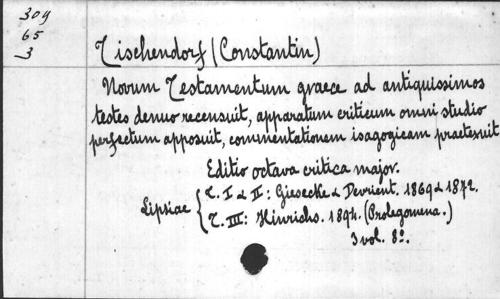 309
65
3
Tischendorf (Constantin)
Novum Testamentum graece ad antiquissimos
testes denuo recensuit, apparatum criticum omni studio
perfectum apposuit, commentationem isagogicam praetexuit
Editio octava critica major.
Lipsiae { T. I & II: Giesecke & Devrient. 1869 & 1872.
T. III: Hinrichs. 1894. (Prolegomena.)
3 vol. 8º.